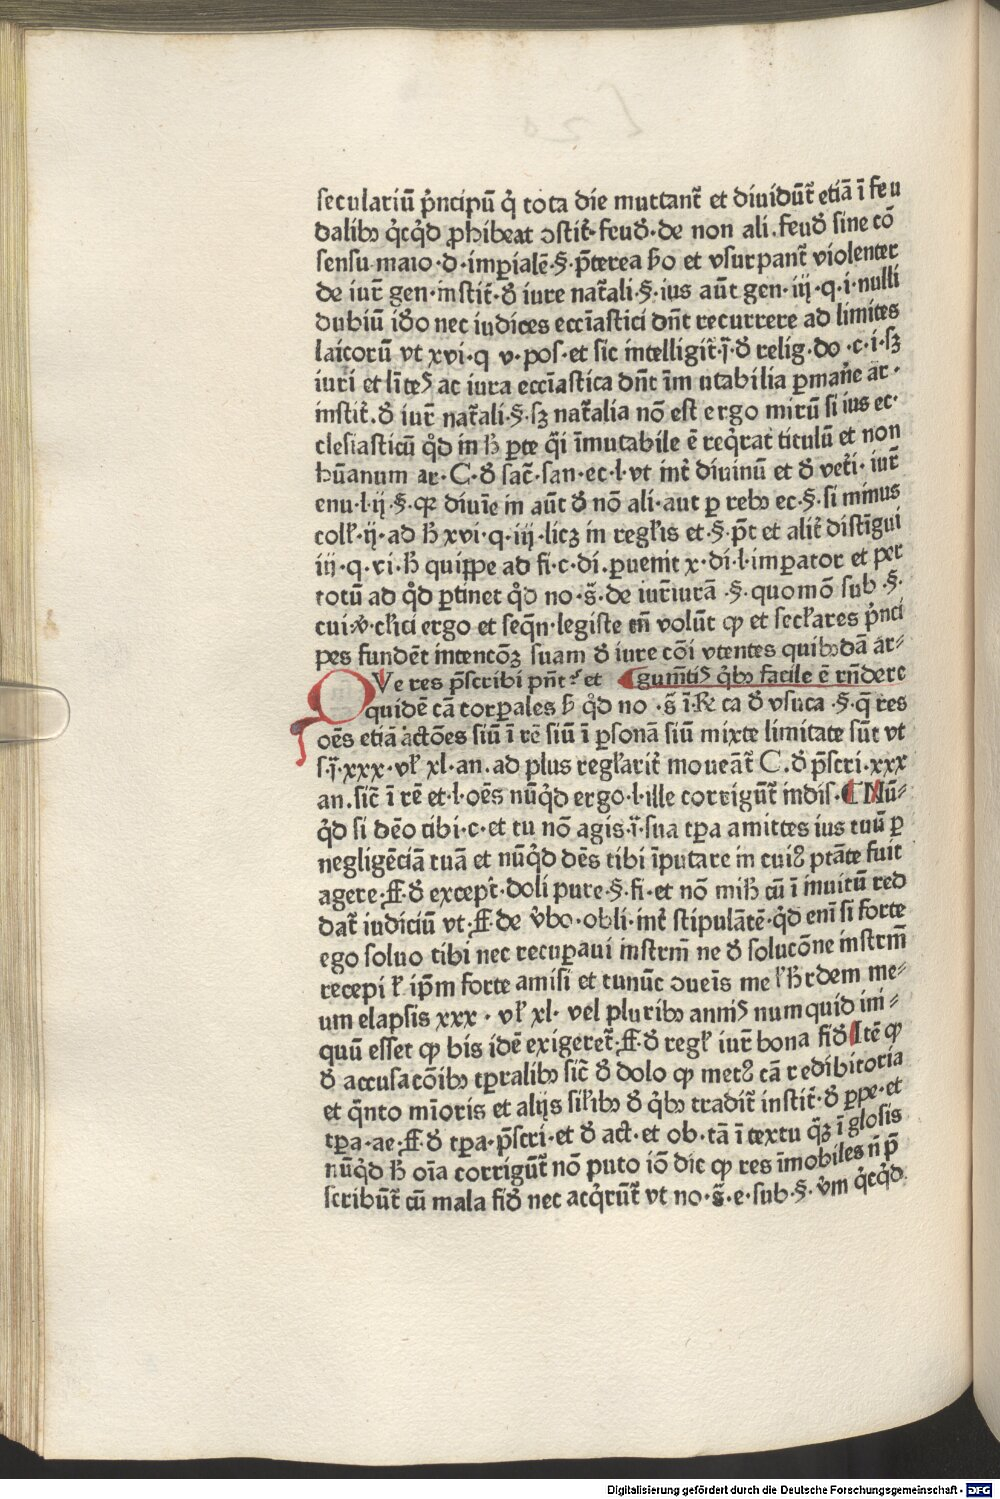 seculariū p̄ncipū q̇ tota die muttant᷑ et diuidūt᷑ etiā ī feu
dalibꝫ q̇cq̇d ꝓhibeat ↄstit᷑·feuđ·de non ali.feuđ sine cō
sensu maio·đ·imꝑialē·§·p̄terea ħo et vsurpant᷑ violenter
de iur᷑ gen·instit᷑·đ iure nat᷑ali·§·ius aūt gen·iij·q·i·nulli
dubiū iđo nec iudices eccīastici dn̄t recurrere ad limites
laicorū vt xvi·q v·pos·et sic intelligit᷑·j̄·đ relig·do·c·i·sꝫ
iuri et līteꝰ ac iura eccīastica dn̄t īm utabilia ꝑmane᷑ ar·
instit᷑.đ iur᷑ nat᷑ali·§·sꝫ nat᷑alia nō est ergo mirū si ius ec·
clesiasticū q̇d in ħ ꝑte q̄i īmutabile ē req̇rat titulū et non
hūanum ar·C·đ sac᷑·san·ec·l·vt int᷑ diuinū et đ vet᷑i·iur᷑
enu·l·ij·§·qꝛ diuīe in aūt đ nō ali·aut ꝑ rebꝫ ec·§·si minus
colł·ij·ad ħ xvi·q·iij·licꝫ in regłis et·§·p̄t et alit᷑ distīgui
iij·q·vi·ħ quippe ad fi·c·di.ꝑuenit x·di·l·imꝑator et per
totū ad q̇d ꝑtinet q̇d no·s̄·de iur᷑iurā·§·quomō sub·§·
cui·v̇·cłici ergo et seq̄n·legiste tn̄ volūt ꝙ et secłares p̄nci
pes fundēt intencōꝫ suam đ iure cōi vtentes quibꝫdā ar⸗
QVe res p̄scribi pn̄t ⁊ et ¶gum̄tiꝰ q̇bꝫ facile ē rn̄dere
quidē cā corꝑales ħ q̇d no·s̄ ī·℟ca đ vsuca·§·q̄ res
oēs etiā actōes siū ī rē siū ī ꝑsonā siū mixte limitate sūt vt
s·j̄·xxx·vł xl·an.ad plus regłarit᷑ moueāt᷑ C.đ p̄scri·xxx
an.sic᷑ ī rē et·l·oēs nūq̇d ergo·l·ille corrigūt᷑ indis·¶Nū⸗
q̇d si dēo tibi·c·et tu nō agis·ī·sua tꝑa amittes ius tuū ꝑ
negligēciā tuā et nūq̇d dēs tibi īputare in cuiꝰ ptāte fuit
agere·ff·đ except᷑·doli pure·§·fi·et nō miħ cū ī inuitū red
dat᷑ iudiciū vt·ff·de v̇bo·obli·int᷑ stipulātē·q̇d enī si forte
ego soluo tibi nec recuꝑaui instrm̄ ne đ solucōne instrm̄
recepi ł ip̄m forte amisi et tunūc ↄueīs me ł ħrdem me⸗
um elapsis xxx·vł xl·vel pluribꝫ anniꝰ numquid ini⸗
quū esset ꝙ bis idē exigeret᷑·ff·đ regł iur᷑ bona fiđ ¶Itē ꝙ
đ accusacōibꝫ tꝑalibꝫ sic᷑ đ dolo ꝙ metꝰ cā redibitoria
et q̄nto mīoris et alijs silibꝫ đ q̇bꝫ tradit᷑ instit᷑·đ ꝑpe·et
tꝑa·ae·ff·đ tꝑa·p̄scri·et đ act᷑·et ob·tā ī textu q̄ꝫ ī glosis
nūq̇d ħ oīa corrigūt᷑ nō puto iō dic ꝙ res īmobiles n̄ p̄
scribūt᷑ cū mala fiđ nec acq̇rūt᷑ vt no·s̄·e·sub·§·v̇m q̇cq̇d
Digitalisierung gefördert durch die Deutsche Forschungsgemeinschaft · DFG